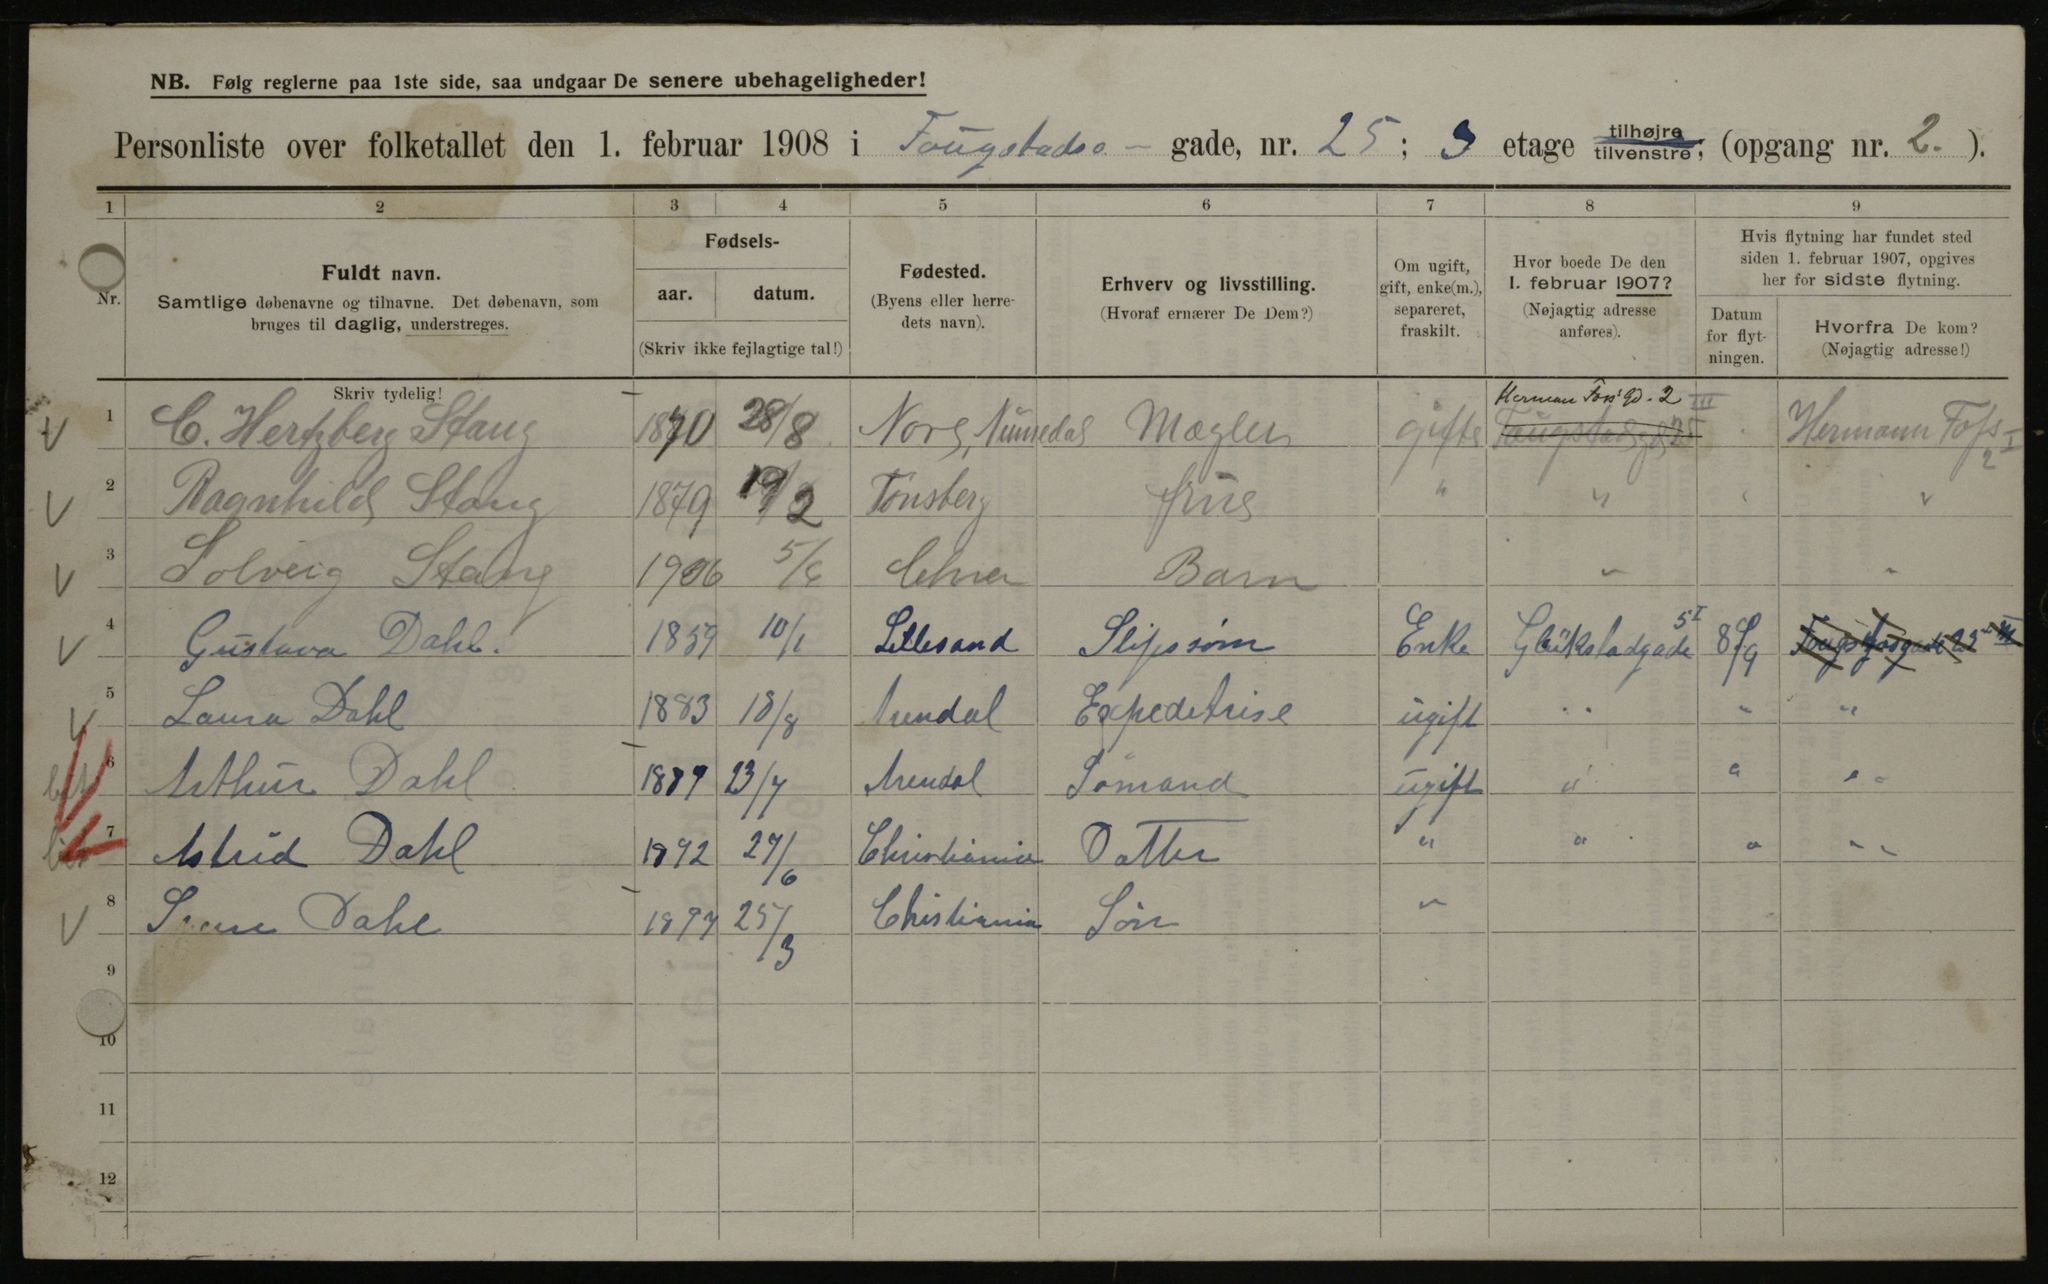 NB. Følg reglerne paa 1ste side, saa undgaar De senere ubehageligheder!
Personliste over folketallet den 1. februar 1908 i Fougstads - gade, nr. 25; 3 etage tilhøjre tilvenstre, (opgang nr. 2.).
1 2 3 4 5 6 7 8 9
Nr.
Fuldt navn.
Samtlige døbenavne og tilnavne. Det døbenavn, som
bruges til daglig, understreges.
Skriv tydelig!
Fødsels-
aar. datum.
(Skriv ikke fejlagtige tal!)
Fødested.
(Byens eller herre-
dets navn).
Erhverv og livsstilling.
(Hvoraf ernærer De Dem?)
Om ugift,
gift, enke(m.),
separeret,
fraskilt.
Hvor boede De den
1. februar 1907?
(Nøjagtig adresse
anføres).
Hvis flytning har fundet sted
siden 1. februar 1907, opgives
her for sidste flytning.
Datum
for flyt-
ningen.
Hvorfra De kom?
(Nøjagtig adresse!)
Herman Foss' Gd. 2 III
1 C. Hertzberg Stang 1870 28/8 Nore, Numedal Mægler gift Fougstadsgd 25 Hermann Foss 2 I
2 Ragnhild Stang 1879 19/2 Tønsberg frue " " " "
3 Solveig Stang 1906 5/6 Chria Barn " "
4 Gustava Dahl. 1859 10/1 Lillesand Slipssøm Enke Glükstadgade 5 I 8/9 Fougstadsgade 25 III
5 Laura Dahl 1883 18/8 Arendal Expeditrise ugift " " "
6 Arthur Dahl 1889 23/7 Arendal Sømand ugift " " "
7 Astrid Dahl 1892 27/6 Christiania Datter " " " "
8 Dahl 1897 25/3 Christiania Søn "
9
10
11
12